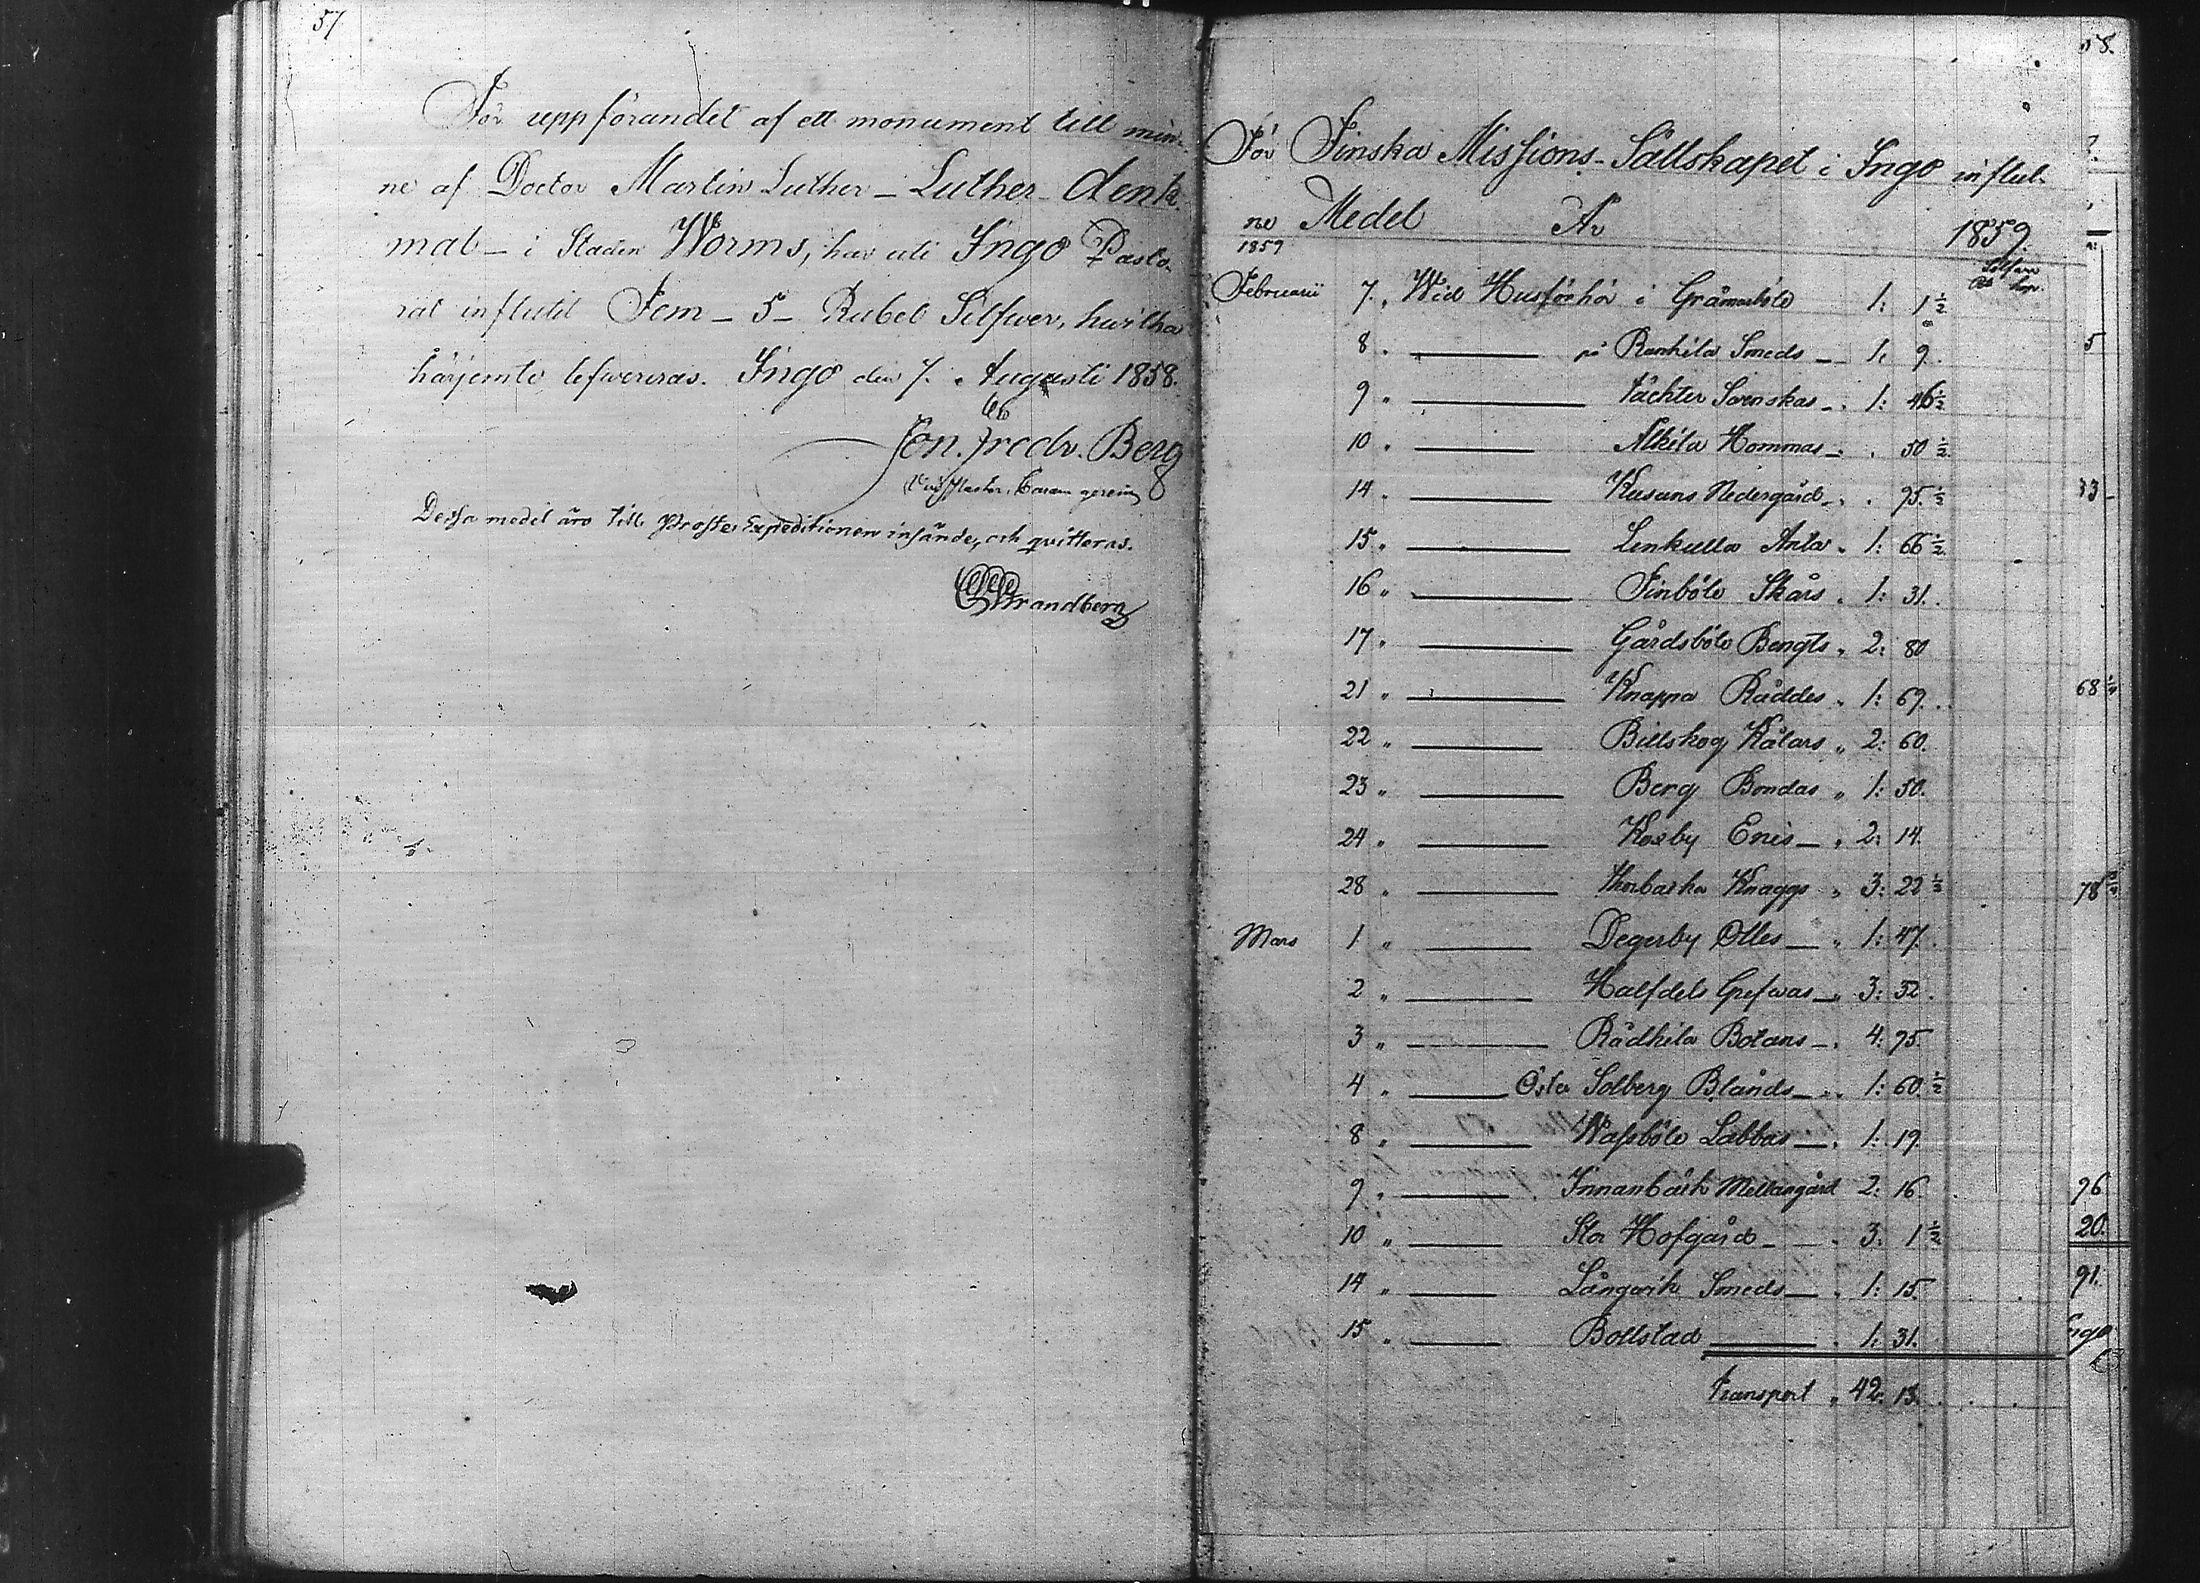 57
För uppförandet af ett monument till min-
ne af Doctor Martin Luther - Luther-denk-
mal - i Staden Worms, har uti Ingo Pasto-
rat influtit Fem - 5 - Rubel Silfwer, hwilka
härjemte lefwereras. Ingo den 7. Augusti 1858.
Jon. Fredr. Berg
Dessa medel äro till Prosts Expeditionen insände, och qvitteras.
Strandberg
58.
För Finska Missions-Sällskapet i Ingo influt-
ne Medel År 1859.
1859 Silfwer
Rb kop.
Februarii 7. Wid Husförhör i Gråmarböle 1: 1 1/2
8 " på Rankila Smeds 1: 9.
9 " Täckter Svenskas 1: 46 1/2
10 " Alkila Hommas " 50 1/2
14 " Kusans Nedergård " 95 1/2
15 " Linkulla Anta " 1: 66 1/2
16 " Finböle Skårs 1: 31.
17 " Gårdsböle Bengts " 2: 80
21 " Knappa Räddes " 1: 69.
22 " Billskog Kålars " 2: 60.
23 " Berg Bondas " 1: 50.
24 " Koxby Enis " 2: 14.
28 " Thorbacka Knaggs " 3: 22 1/2
Mars 1 " Degerby Olles " 1: 47.
2 " Halfdels Grefwas 3: 32.
3 " Rådkila Botans 4: 95.
4 " Öster Solberg Blånds 1: 60 1/2
8 " Wassböle Labbas 1: 19.
9 " Innanbäck Mellangård 2: 16
10 " Stor Hofgård 3: 1 1/2
14 " Långwik Smeds 1: 15.
15 " Bollstad 1: 31.
Transport " 42: 13.
5
33
68 1/4
78 3/4
96
20.
91.
Ingo